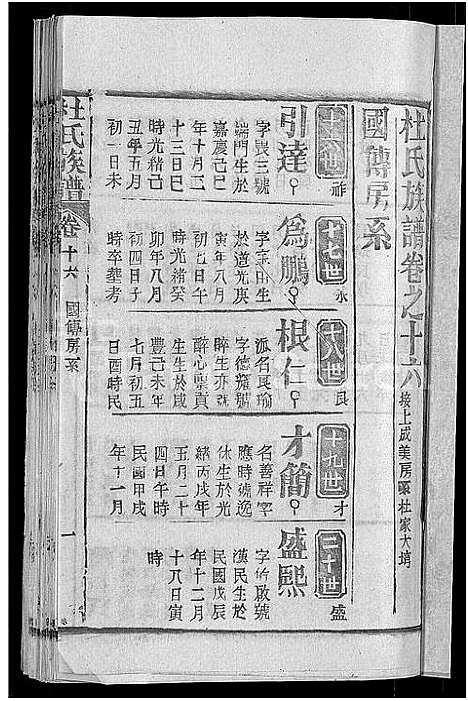 杜氏族譜卷之十六 接上成美房系杜家大塆
國傳房系
十六世 祚
引達
字畏三號
端門生於
嘉慶己巳
年十月二
十三日巳
時光緒己
丑年五月
初一日未
十七世 永
為鵬
字 生
於道光庚
寅年八月
初七日午
時光緒癸
卯年八月
初四日子
時卒葬考
十八世 良
根仁
派名良瑜
字德 號
晬生亦號
醉心禀貢
生生於咸
豐己未年
七月初五
日酉時民
十九世 才
才簡
名善祥字
應時號逸
休生於光
緒丙戌年
五月二十
四日午時
民國甲戌
年十一月
二十世 盛
盛熙
字 啟號
漢民生於
民國戊辰
年十二月
十八日寅
時
杜氏族譜 卷十六 國傳房系 一